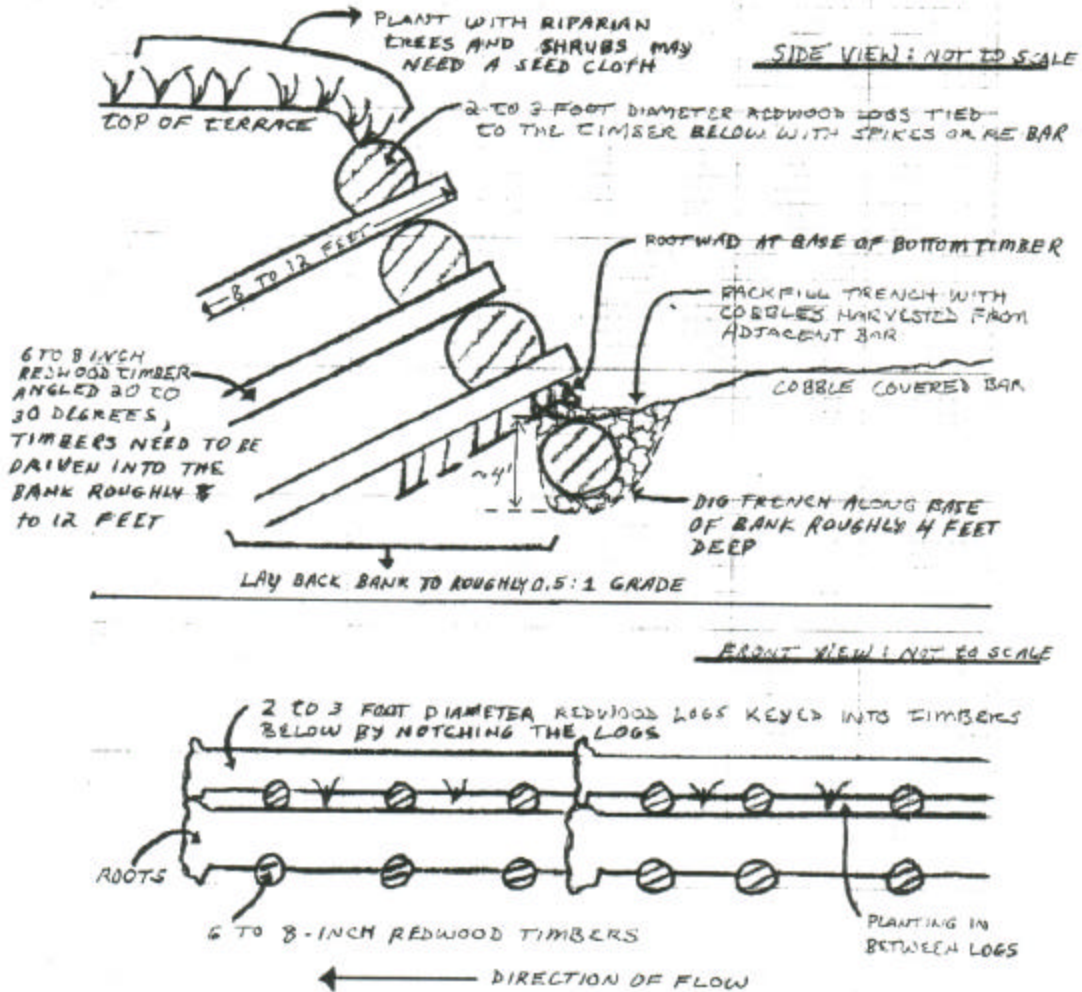 PLANT WITH RIPARIAN
TREES AND SHRUBS MAY
NEED A SEED CLOTH
SIDE VIEW: NOT TO SCALE
TOP OF TERRACE
2 TO 3 FOOT DIAMETER REDWOOD LOGS TIED
TO THE TIMBER BELOW WITH SPIKES OR RE BAR
8 TO 12 FEET
ROOTWAD AT BASE OF BOTTOM TIMBER
BACKFILL TRENCH WITH
COBBLES HARVESTED FROM
ADJACENT BAR
COBBLE COVERED BAR
6 TO 8 INCH
REDWOOD TIMBER
ANGLED 20 TO
30 DEGREES,
TIMBERS NEED TO BE
DRIVEN INTO THE
BANK ROUGHLY 8
to 12 FEET
~4'
DIG TRENCH ALONG BASE
OF BANK ROUGHLY 4 FEET
DEEP
LAY BACK BANK TO ROUGHLY 0.5:1 GRADE
FRONT VIEW: NOT TO SCALE
2 TO 3 FOOT DIAMETER REDWOOD LOGS KEYED INTO TIMBERS
BELOW BY NOTCHING THE LOGS
ROOTS
6 TO 8-INCH REDWOOD TIMBERS
PLANTING IN
BETWEEN LOGS
DIRECTION OF FLOW